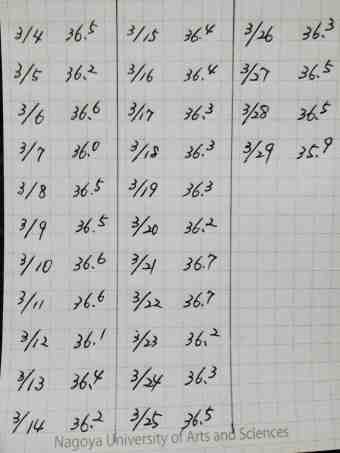 3/4 36.5
3/5 36.2
3/6 36.6
3/7 36.0
3/8 36.5
3/9 36.5
3/10 36.6
3/11 36.6
3/12 36.1
3/13 36.4
3/14 36.2
3/15 36.4
3/16 36.4
3/17 36.3
3/18 36.3
3/19 36.3
3/20 36.2
3/21 36.7
3/22 36.7
3/23 36.2
3/24 36.3
3/25 36.5
3/26 36.3
3/27 36.5
3/28 36.5
3/29 35.9
Nagoya University of Arts and Sciences